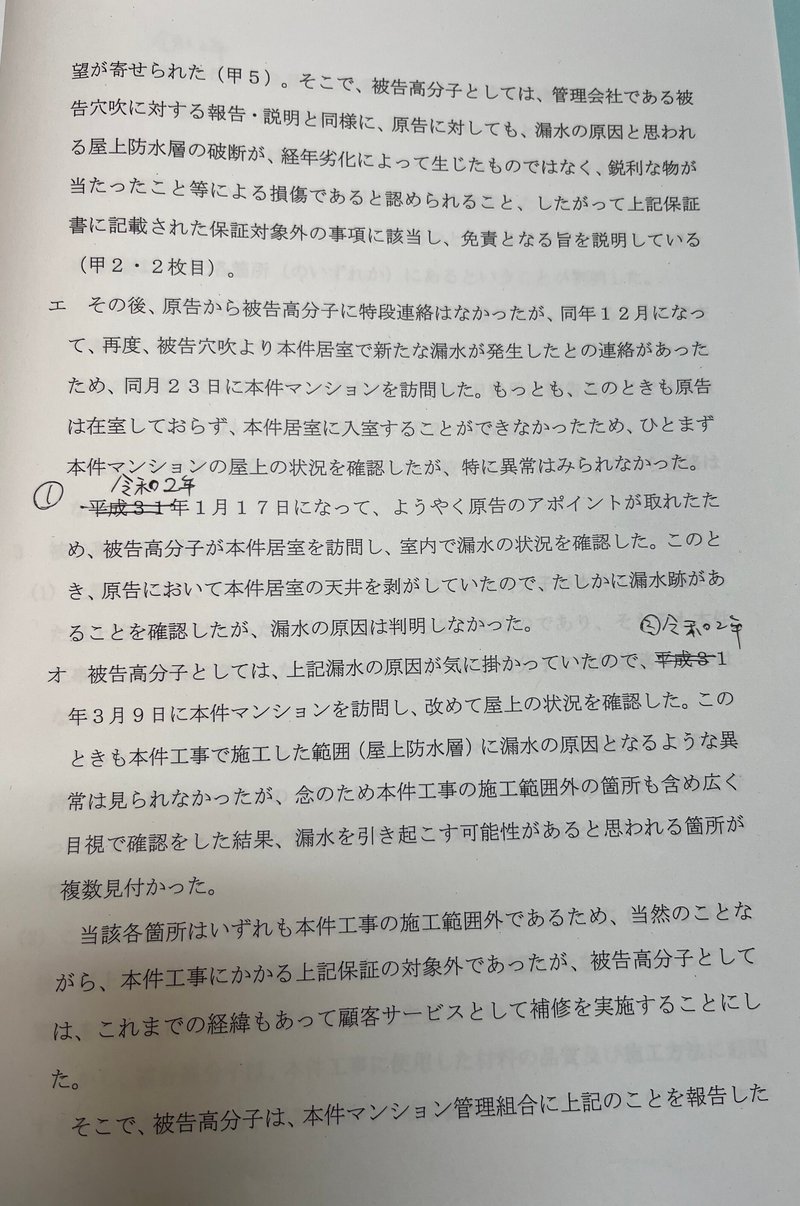 望が寄せられた（甲５）。そこで、被告高分子としては、管理会社である被
告穴吹に対する報告・説明と同様に、原告に対しても、漏水の原因と思われ
る屋上防水層の破断が、経年劣化によって生じたものではなく、鋭利な物が
当たったこと等による損傷であると認められること、したがって上記保証
書に記載された保証対象外の事項に該当し、免責となる旨を説明している
（甲２・２枚目）。
エ　その後、原告から被告高分子に特段連絡はなかったが、同年１２月になっ
て、再度、被告穴吹より本件居室で新たな漏水が発生したとの連絡があった
ため、同月２３日に本件マンションを訪問した。もっとも、このときも原告
は在室しておらず、本件居室に入室することができなかったため、ひとまず
本件マンションの屋上の状況を確認したが、特に異常はみられなかった。
令和２年
① 平成３１年１月１７日になって、ようやく原告のアポイントが取れたた
め、被告高分子が本件居室を訪問し、室内で漏水の状況を確認した。このと
き、原告において本件居室の天井を剥がしていたので、たしかに漏水跡があ
ることを確認したが、漏水の原因は判明しなかった。
②令和２年
オ　被告高分子としては、上記漏水の原因が気に掛かっていたので、平成３１
年３月９日に本件マンションを訪問し、改めて屋上の状況を確認した。この
ときも本件工事で施工した範囲（屋上防水層）に漏水の原因となるような異
常は見られなかったが、念のため本件工事の施工範囲外の箇所も含め広く
目視で確認をした結果、漏水を引き起こす可能性があると思われる箇所が
複数見付かった。
当該各箇所はいずれも本件工事の施工範囲外であるため、当然のことな
がら、本件工事にかかる上記保証の対象外であったが、被告高分子として
は、これまでの経緯もあって顧客サービスとして補修を実施することにし
た。
そこで、被告高分子は、本件マンション管理組合に上記のことを報告した